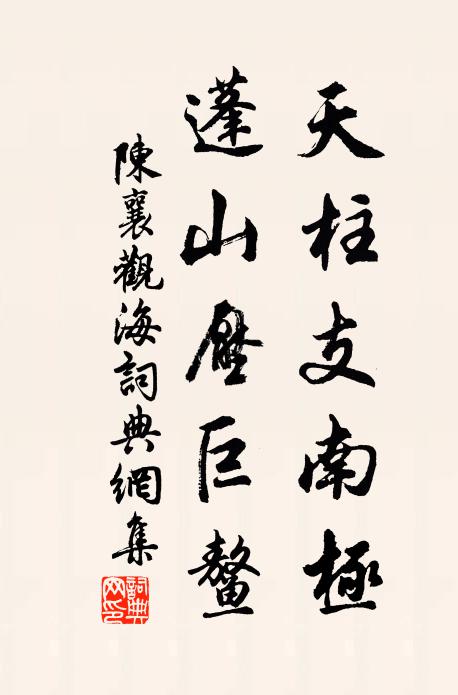 天柱支南極
蓬山壓巨鰲
陳襄觀海詞典網集
詞典網印